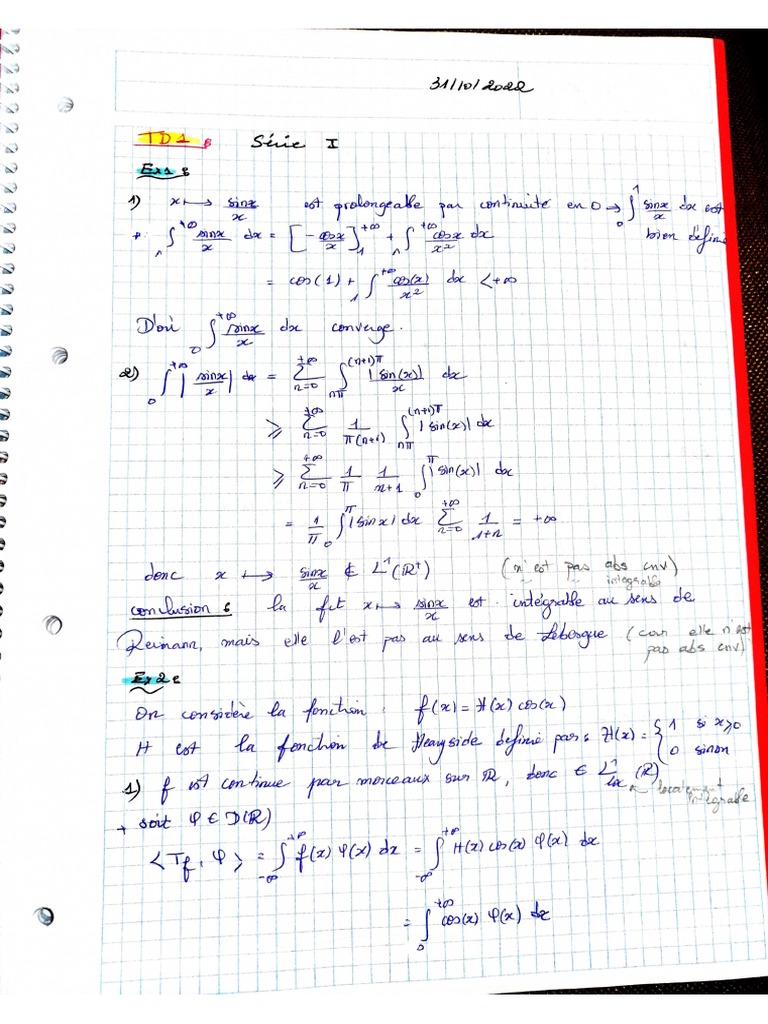 31/10/2022
TD1 : Série I
Ex1 :
1) x ⟼ sinx/x est prolongeable par continuité en 0 → ∫_0^1 sinx/x dx est bien définie
+ ∫_1^{+∞} sinx/x dx = [-cosx/x]_1^{+∞} + ∫_1^{+∞} cosx/x² dx
= cos(1) + ∫_1^{+∞} cos(x)/x² dx < +∞
D'où ∫_0^{+∞} sinx/x dx converge.
2) ∫_0^{+∞} |sinx/x| dx = ∑_{n=0}^{+∞} ∫_{nπ}^{(n+1)π} |sin(x)|/x dx
⩾ ∑_{n=0}^{+∞} 1/π(n+1) ∫_{nπ}^{(n+1)π} |sin(x)| dx
⩾ ∑_{n=0}^{+∞} 1/π 1/n+1 ∫_0^π |sin(x)| dx
= 1/π ∫_0^π |sinx| dx ∑_{n=0}^{+∞} 1/1+n = +∞
donc x ⟼ sinx/x ∉ L¹(R⁺) (n'est pas abs cnv)
intégrable
conclusion : la fct x ⟼ sinx/x est intégrable au sens de
Reimann, mais elle l'est pas au sens de Lebesgue (car elle n'est
pas abs cnv)
Ex2 :
On considère la fonction : f(x) = H(x) cos(x)
H est la fonction de Heavyside definie par : H(x) = { 1 si x⩾0
0 sinon
1) f est continue par morceaux sur R, donc ∈ L¹_loc(R)
locatement
intégrable
+ soit φ ∈ D(R)
⟨T_f, φ⟩ = ∫_{-∞}^{+∞} f(x) φ(x) dx = ∫_{-∞}^{+∞} H(x) cos(x) φ(x) dx
= ∫_0^{+∞} cos(x) φ(x) dx